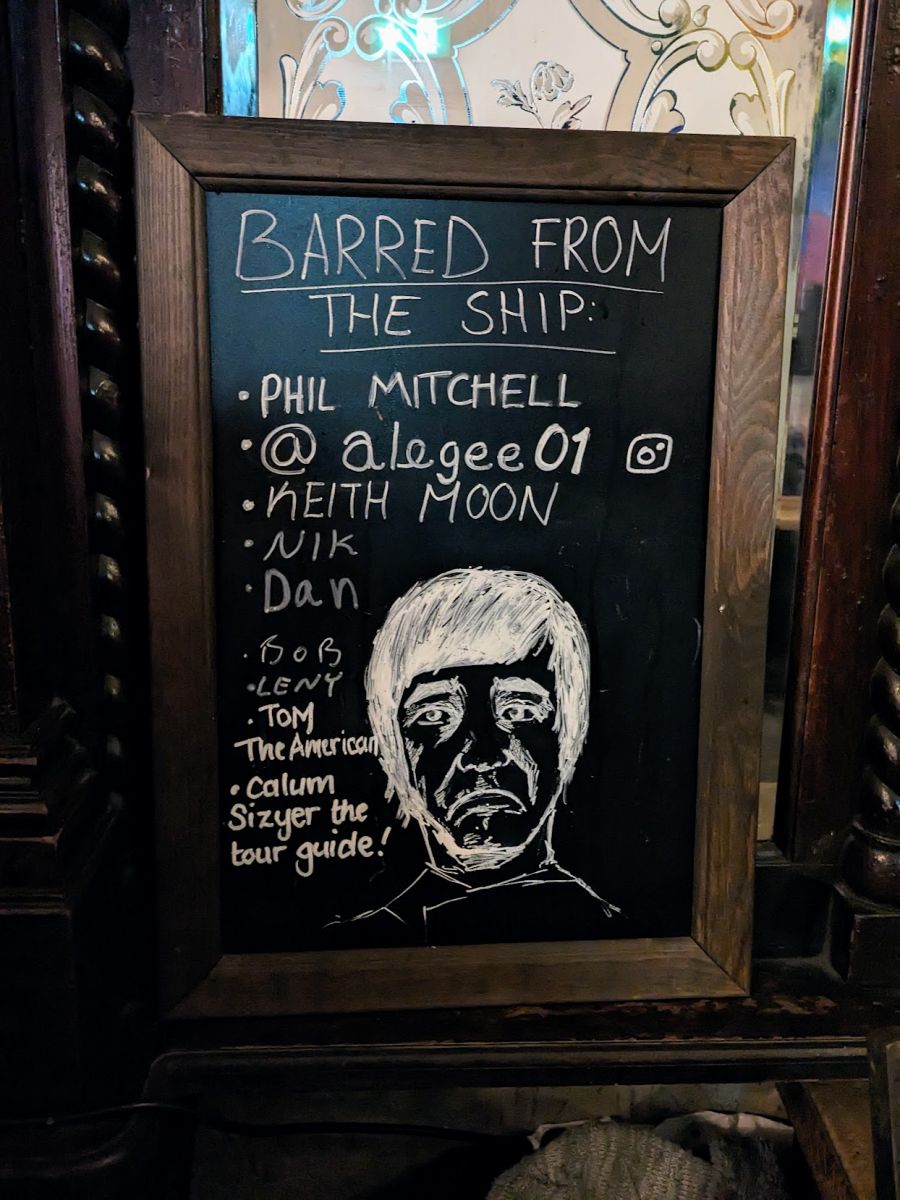 BARRED FROM
THE SHIP:
• PHIL MITCHELL
• @alegee01
• KEITH MOON
• NIK
• Dan
• BOB
• LENY
• TOM
The American
• Calum
Sizyer the
tour guide!